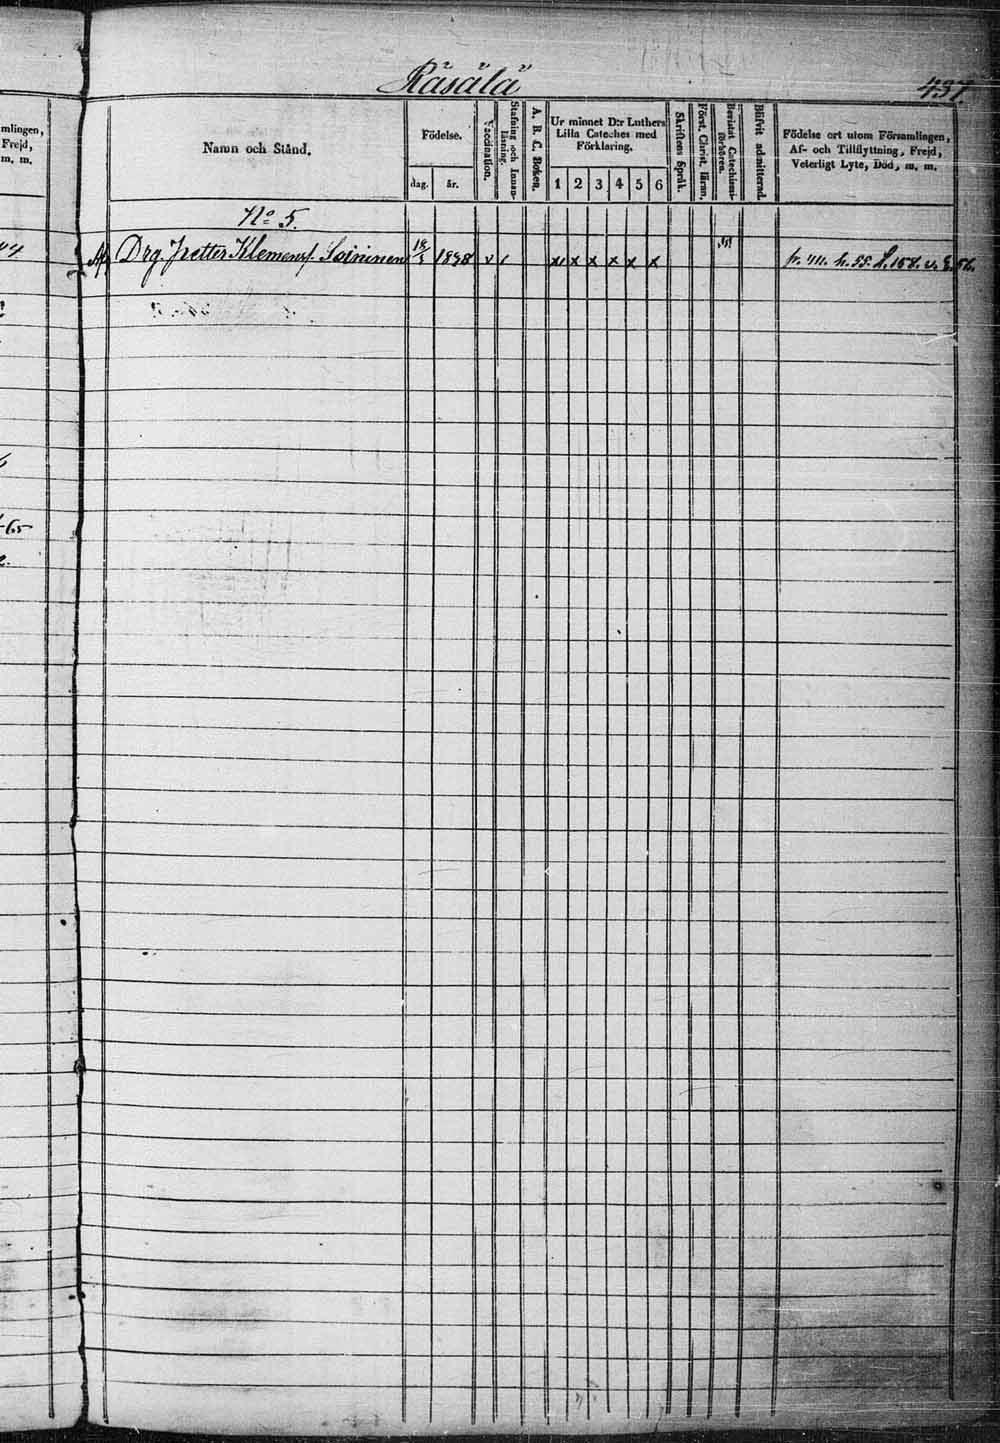 Räsälä
437.
mlingen,
Frejd,
m. m.
Namn och Stånd.
Födelse.
dag.
år.
Vaccination.
Stafning och Innanläsning.
A. B. C. Boken.
Ur minnet D:r Luthers
Lilla Cateches med
Förklaring.
1 2 3 4 5 6
Skriftens Språk.
Först. Christ. läran.
Bevistat Catechismiförhören.
Blifvit admitterad.
Födelse ort utom Församlingen,
Af- och Tillflyttning, Frejd,
Veterligt Lyte, Död, m. m.
No 5.
Drg. Petter Klemens. Soininen 18/3 1838 v x x x x x x
65